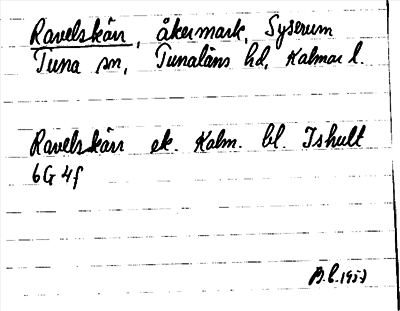 Ravelskärr, åkermark, Syserum
Tuna sn, Tunaläns hd, Kalmar l.
Ravelskärr ek. Kalm. bl. Ishult
6G 4f